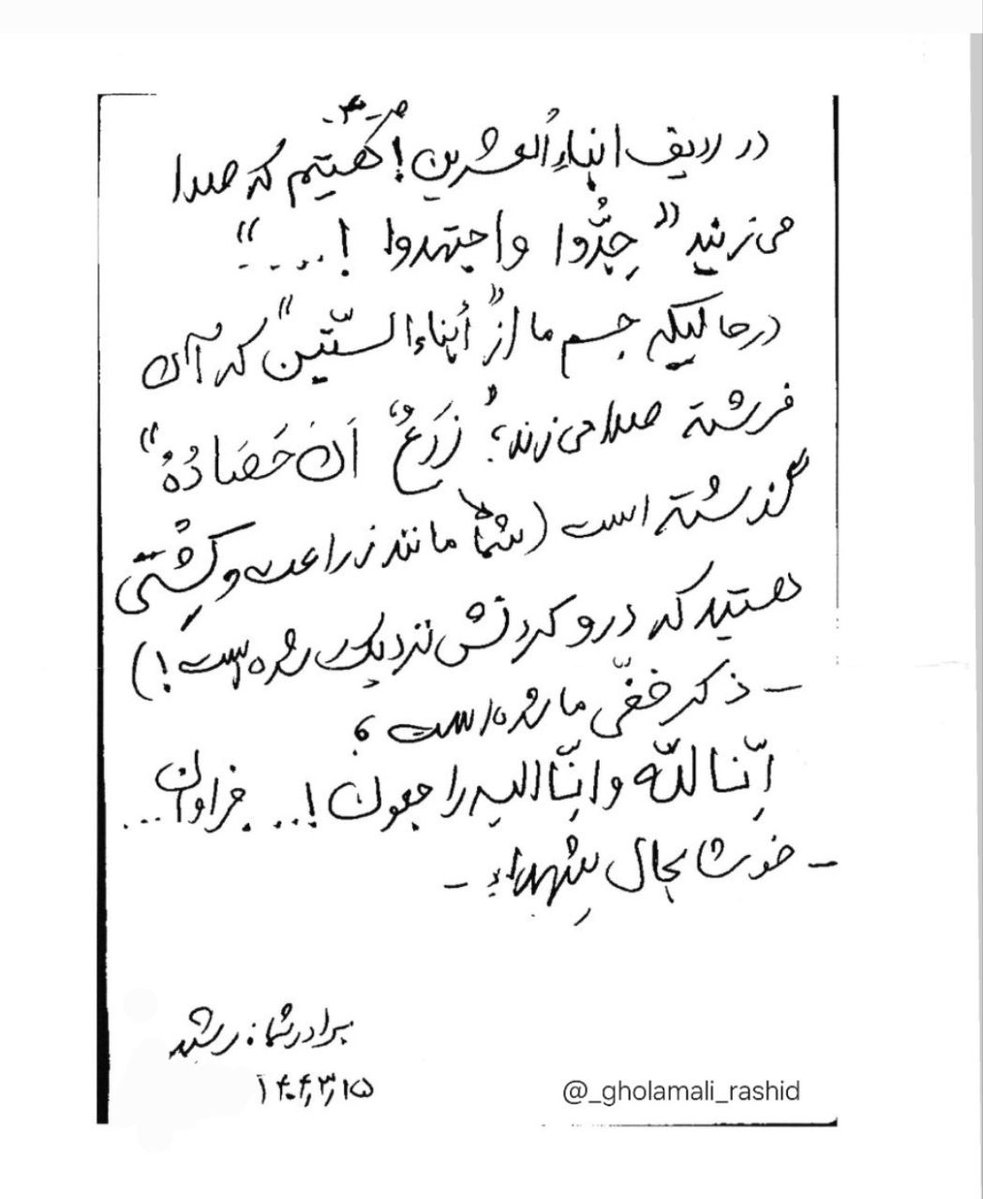 ص-۳-
در ردیف ابناءِ العشرین! هستیم که صدا
می‌زنند "جِدُّوا واجتهدوا !....."
درحالیکه جسم ما از "أبناء الستّین" که آن
فرشته صدا می‌زند؛ "زَرعٌ اَن حَصَادُهُ"
گذشته است (شما مانند زراعت و کِشتی
هستید که درو کردنش نزدیک شده است!)
– ذکر خفیّ ما شده است؛
اِنّا للّه وانّا الیه راجعون!... فراوان...
– خوشا بحال شهداء –
برادر شما: رشید
۱۴۰۴,۳,۱۵
@_gholamali_rashid